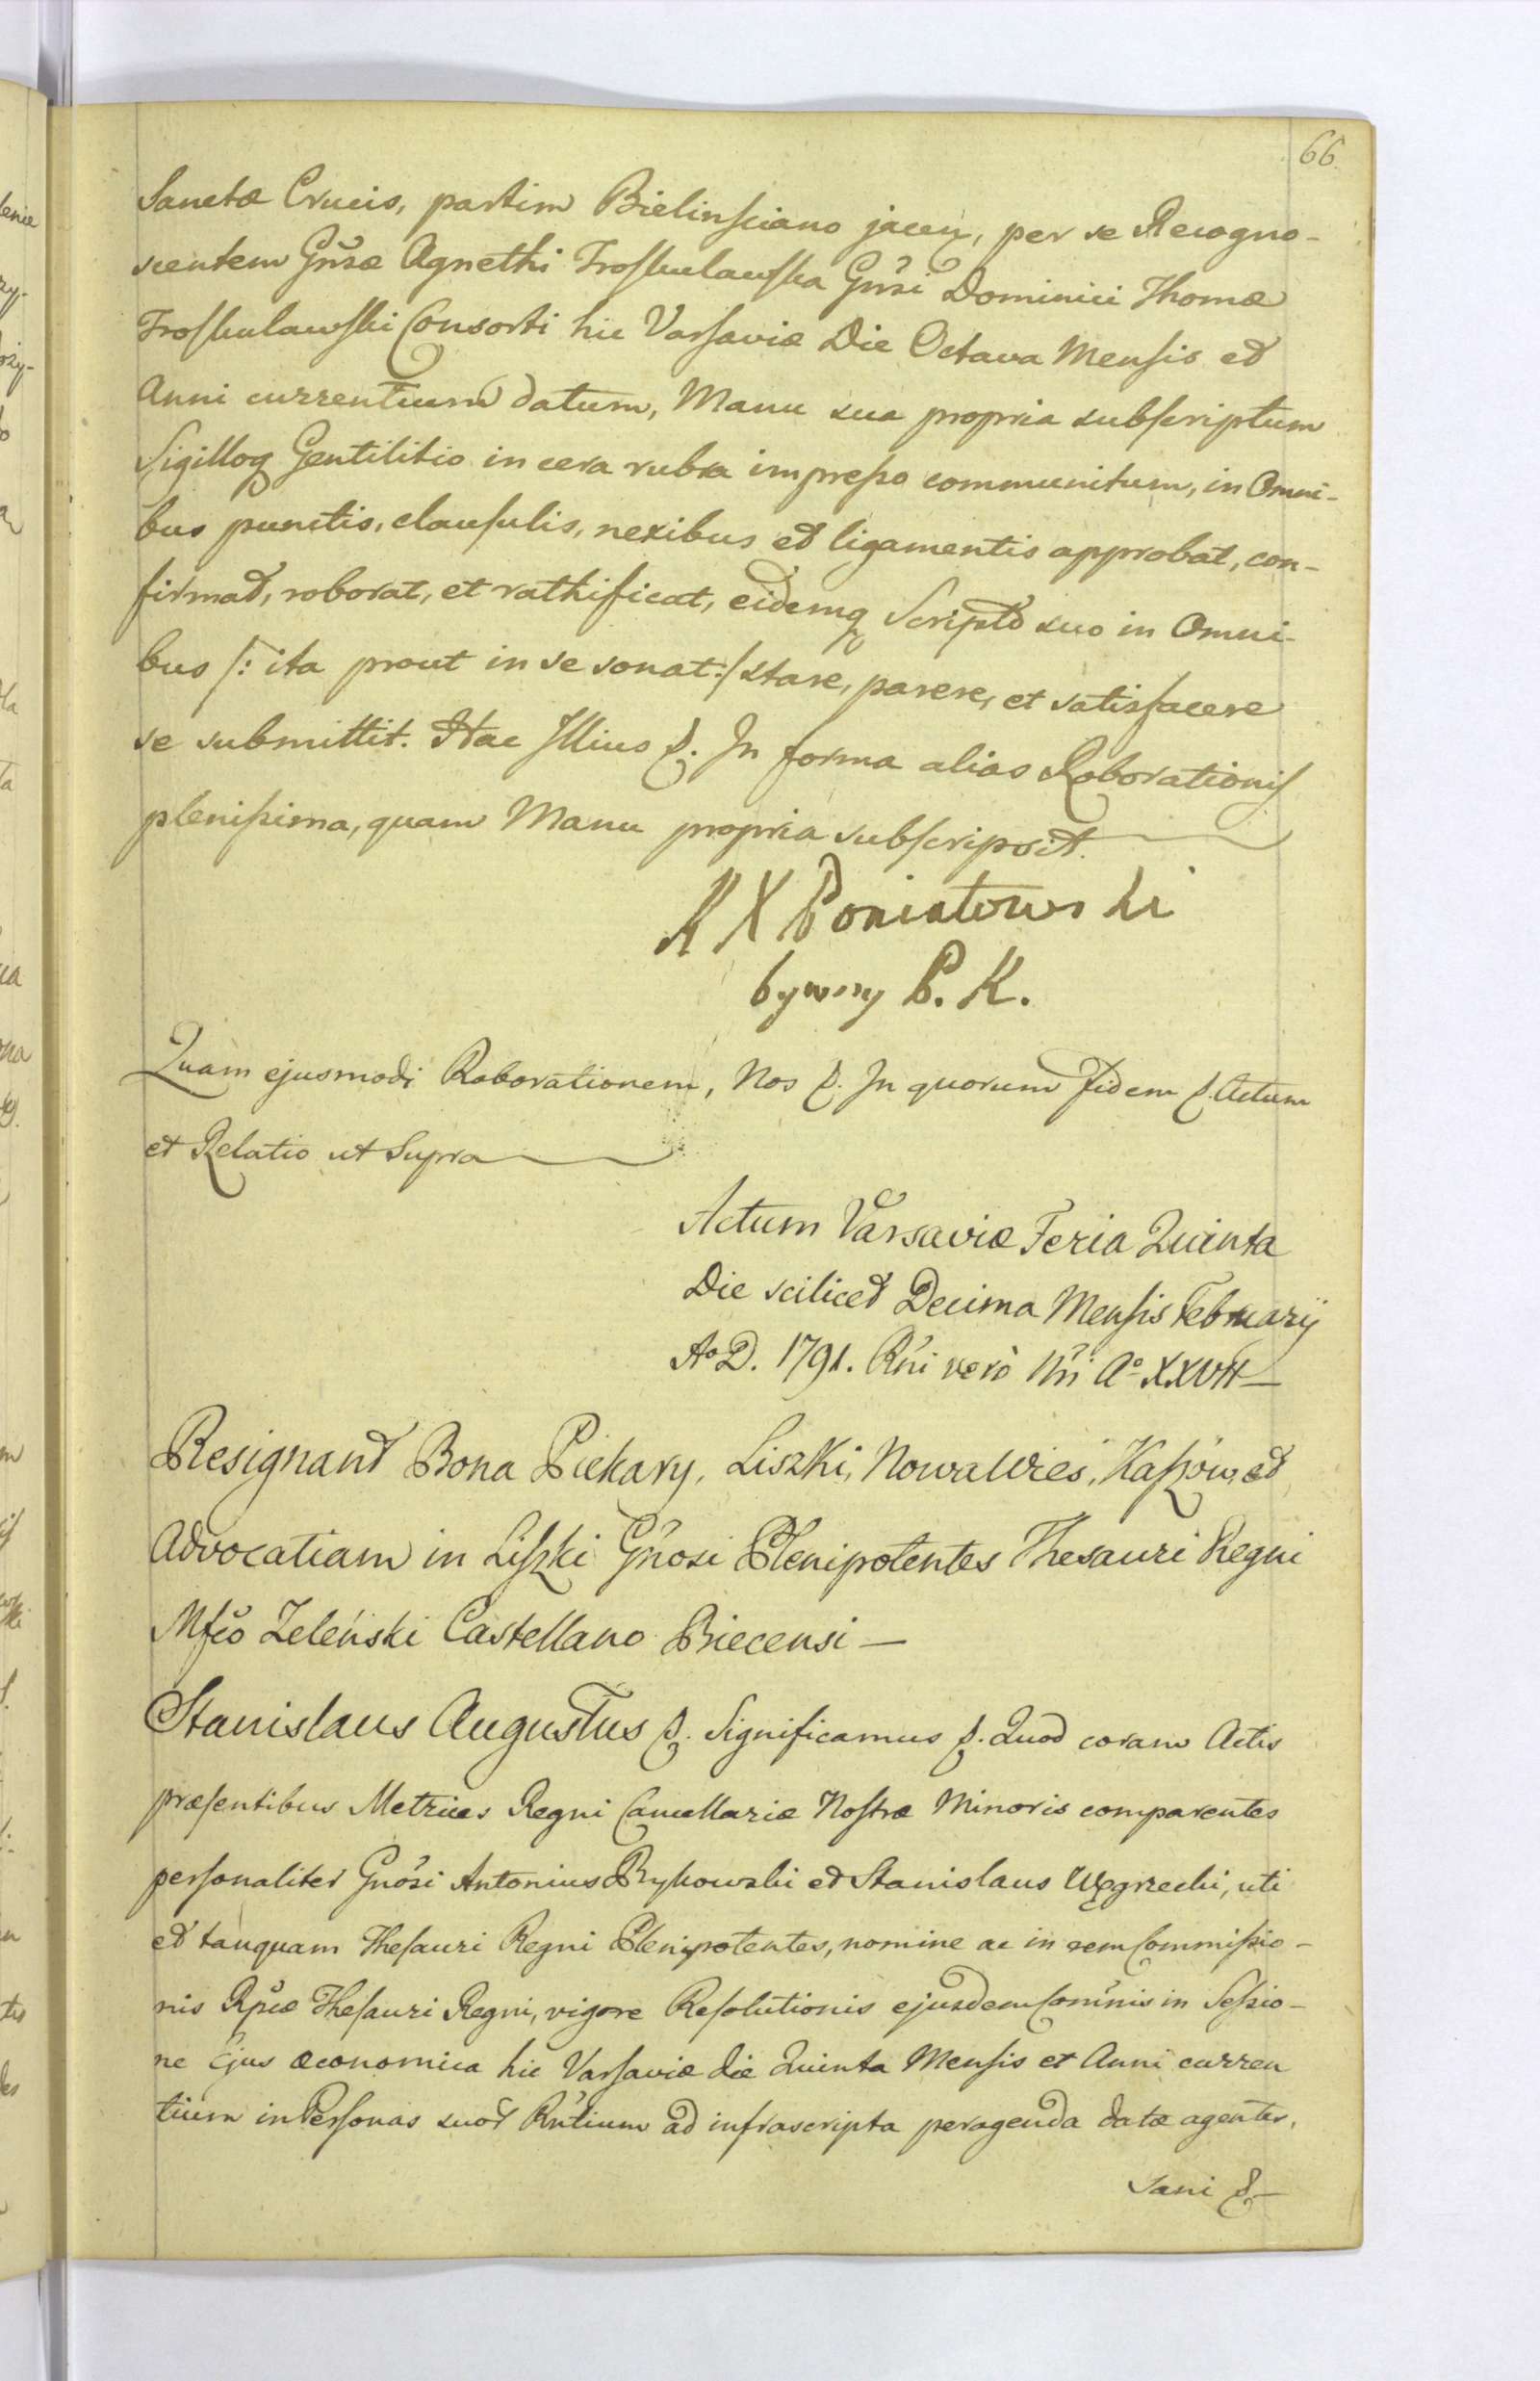 66.
Sanctæ Crucis, partim Bielinsciano jacen, per se Recogno-
scentem Gnsæ Agnethi Troskulawska Gnsi Dominici Thomæ
Troskulawski Consorti hic Varsaviæ Die Octava Mensis et
Anni currentium datum, Manu sua propria subscriptum
Sigilloq Gentilitio in cera rubra impresso communitum, in Omni-
bus punctis, clausulis, nexibus et ligamentis approbat, con-
firmat, roborat, et rathificat, eidemq Scripto suo in Omni-
bus /: ita prout in se sonat :/ stare, parere, et satisfacere
se submittit. Hac Illius &. In forma alias Roborationis
plenissima, quam Manu propria subscripsit.
K X Poniatowski
bywszy P. K.
Quam ejusmodi Roborationem, Nos &. In quorum fidem &. Actum
et Relatio ut Supra
Actum Varsaviæ Feria Quinta
Die scilicet Decima Mensis Februarij
Ao D. 1791. Rni verò Nri Ao XXVII
Resignant Bona Piekary, Liszki, Nowawieś, Kaszów, et
Advocatiam in Liszki Gnosi Plenipotentes Thesauri Regni
Mfco Zeleński Castellano Biecensi —
Stanislaus Augustus &. Significamus &. Quod coram Actis
præsentibus Metrices Regni Cancellariæ Nostræ Minoris comparentes
personaliter Gnosi Antonius Rykowski et Stanislaus Węgrzecki, uti
et tanquam Thesauri Regni Plenipotentes, nomine ac in rem Commissio-
nis Rpcæ Thesauri Regni, vigore Resolutionis ejusdem Comnis in Sessio-
ne Ejus œconomica hic Varsaviæ die Quinta Mensis et Anni curren
tium in Personas suor Rntium ad infrascripta peragenda datæ agentes,
Sani &